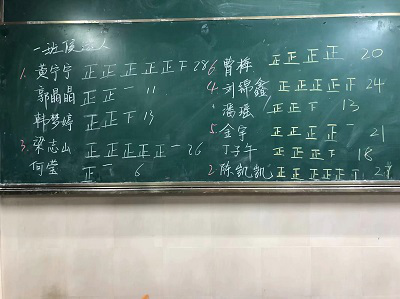 一班候选人
1. 黄宁宁 正正正正正下 28
郭晶晶 正正一 11
韩梦婷 正正下 13
3. 梁志山 正正正正正一 26
何莹 正一 6
6 曾梅 正正正正 20
4. 刘锦鑫 正正正正 24
潘瑶 正正下 13
5 金宇 正正正正一 21
丁子午 正正正下 18
2 陈凯凯 正正正正正